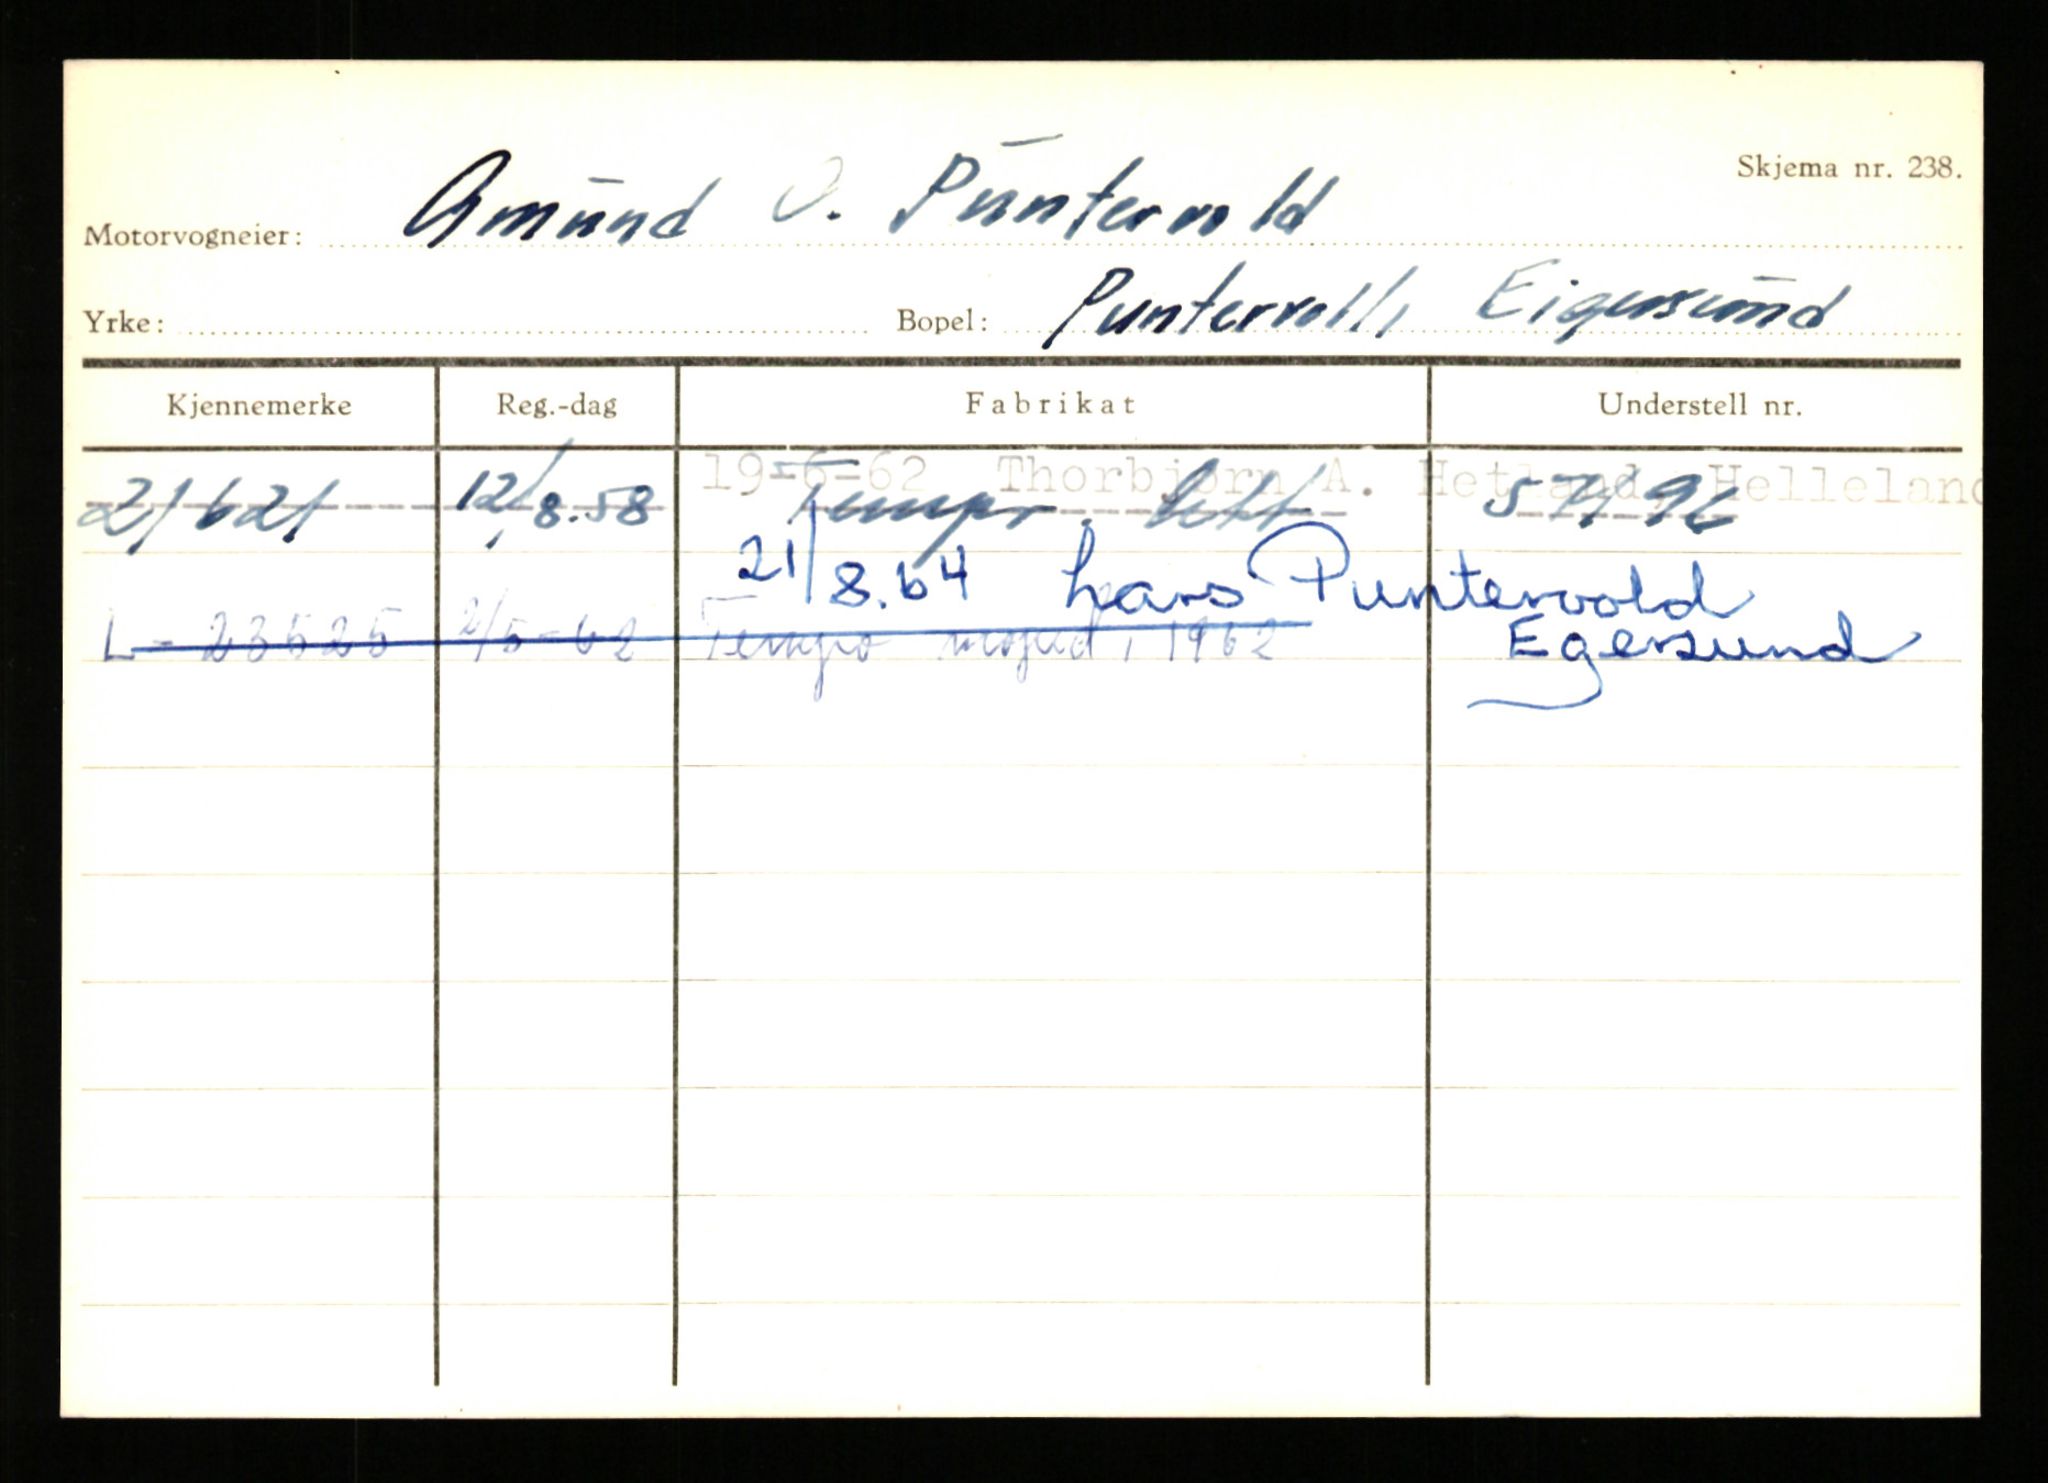 Skjema nr. 238.
Motorvogneier: Amund O. Puntervold
Yrke: Bopel: Puntervoll, Eigersund
Kjennemerke Reg.-dag Fabrikat Understell nr.
19-6-62 Thorbjørn A. Hetland, Helleland
21621 12/8.58 Tempo lett 577196
21/8.64 Lars Puntervold
Egersund
L-23525 2/5-62 Tempo moped, 1962